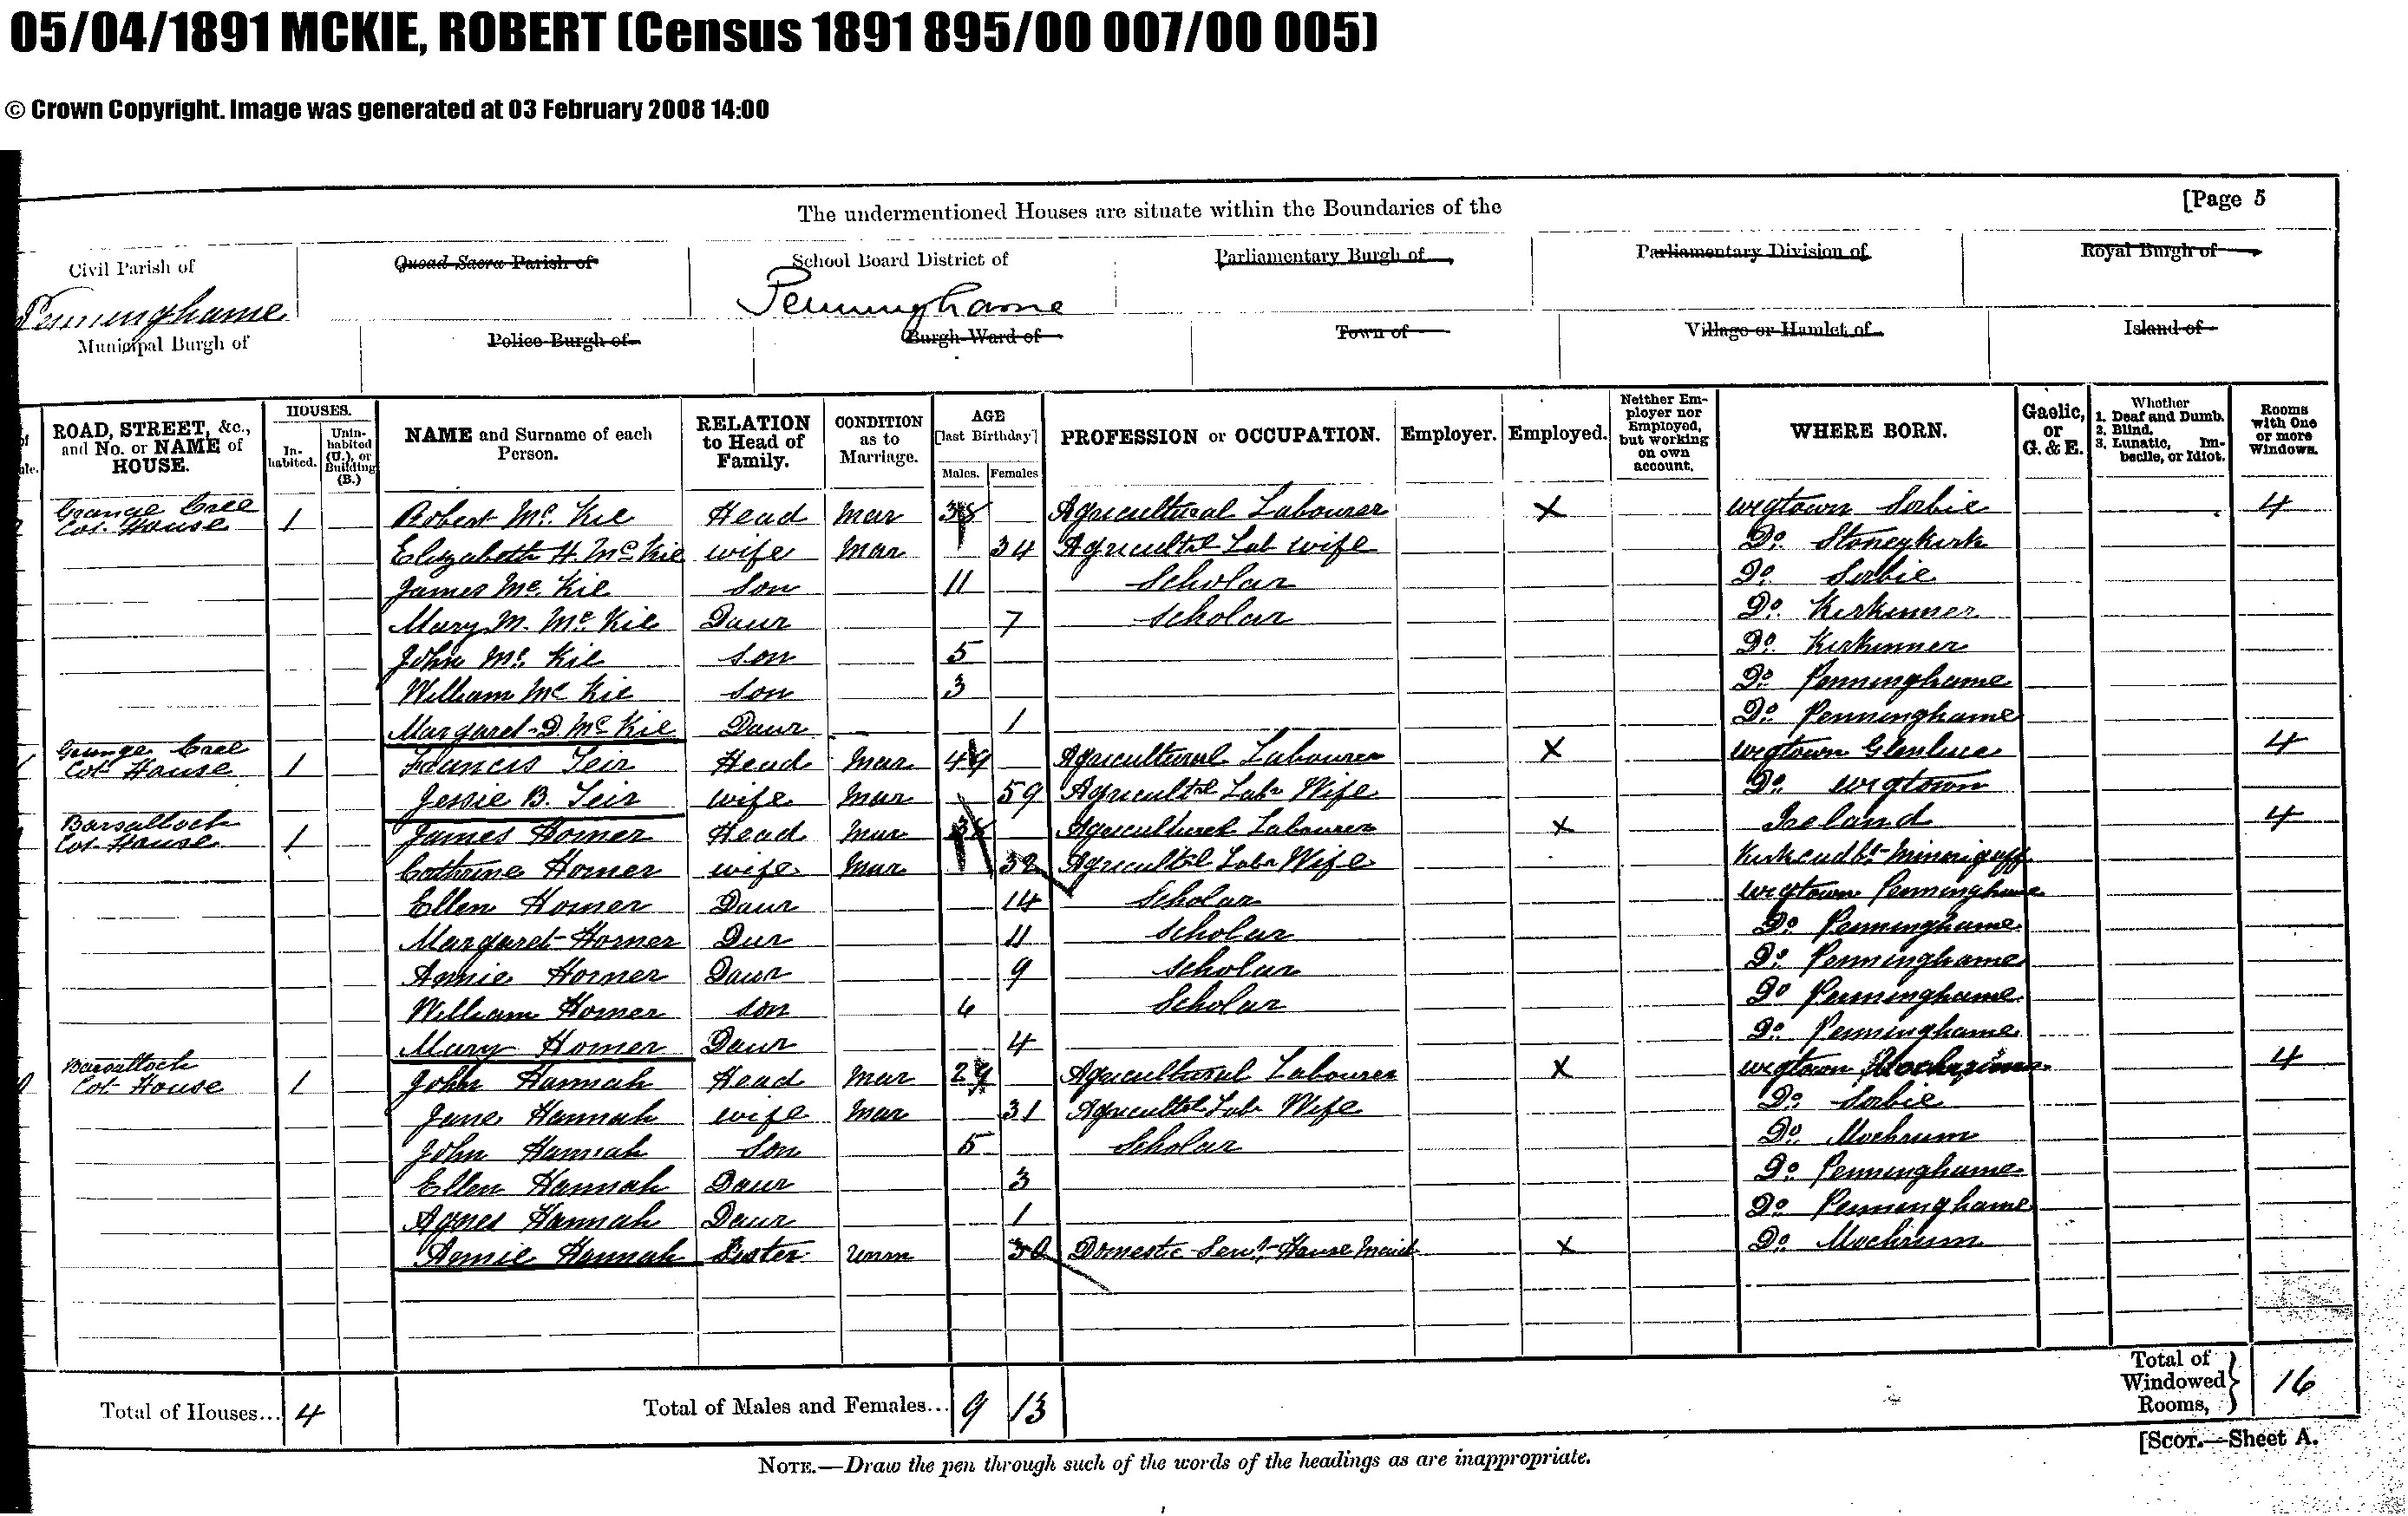 05/04/1891 MCKIE, ROBERT (Census 1891 895/00 007/00 005)
© Crown Copyright. Image was generated at 03 February 2008 14:00
The undermentioned Houses are situate within the Boundaries of the [Page 5
Civil Parish of Quoad Sacra Parish of School Board District of Parliamentary Burgh of Parliamentary Division of Royal Burgh of
Penninghame Penninghame
Municipal Burgh of Police Burgh of Burgh Ward of Town of Village or Hamlet of Island of
ROAD, STREET, &c., and No. or NAME of HOUSE. HOUSES. Inhabited. Uninhabited (U.), or Building (B.) NAME and Surname of each Person. RELATION to Head of Family. CONDITION as to Marriage. AGE [last Birthday] Males. Females PROFESSION or OCCUPATION. Employer. Employed. Neither Employer nor Employed, but working on own account. WHERE BORN. Gaelic, or G. & E. Whether 1. Deaf and Dumb. 2. Blind. 3. Lunatic, Imbecile, or Idiot. Rooms with One or more Windows.
Grange Cree Cot. House 1 Robert Mc Kie Head Mar 38 Agricultural Labourer X Wigtown Sorbie 4
Elizabeth H. McKie wife Mar 34 Agricultel Lab wife Do Stoneykirk
James Mc Kie Son 11 Scholar Do Sorbie
Mary M. Mc Kie Daur 7 Scholar Do Kirkinner
John Mc Kie Son 5 Do Kirkinner
William Mc Kie Son 3 Do Penninghame
Margaret D. Mc Kie Daur 1 Do Penninghame
Grange Cree Cot House 1 Francis Teir Head Mar 49 Agricultural Labourer X Wigtown Glenluce 4
Jessie B. Teir wife Mar 59 Agricultel Labr Wife Do Wigtown
Barsalloch Cot House 1 James Horner Head Mar Agricultural Labourer X Ireland 4
Cathrine Horner wife Mar 32 Agricultel Labr Wife Kirkcudbt Minnigaff
Ellen Horner Daur 14 Scholar Wigtown Penninghame
Margaret Horner Dur 11 Scholar Do Penninghame
Annie Horner Daur 9 Scholar Do Penninghame
William Horner Son 6 Scholar Do Penninghame
Mary Horner Daur 4 Do Penninghame
Barsalloch Cot House 1 John Hannah Head Mar 29 Agricultural Labourer X Wigtown 4
Jane Hannah wife Mar 31 Agricultel Labr Wife Do Sorbie
John Hannah Son 5 Scholar Do Mochrum
Ellen Hannah Daur 3 Do Penninghame
Agnes Hannah Daur 1 Do Penninghame
Annie Hannah Sister Unm 30 Domestic Servt House Maid X Do Mochrum
Total of Houses... 4 Total of Males and Females... 9 13 Total of Windowed Rooms, 16
[SCOT.—Sheet A.
NOTE.—Draw the pen through such of the words of the headings as are inappropriate.